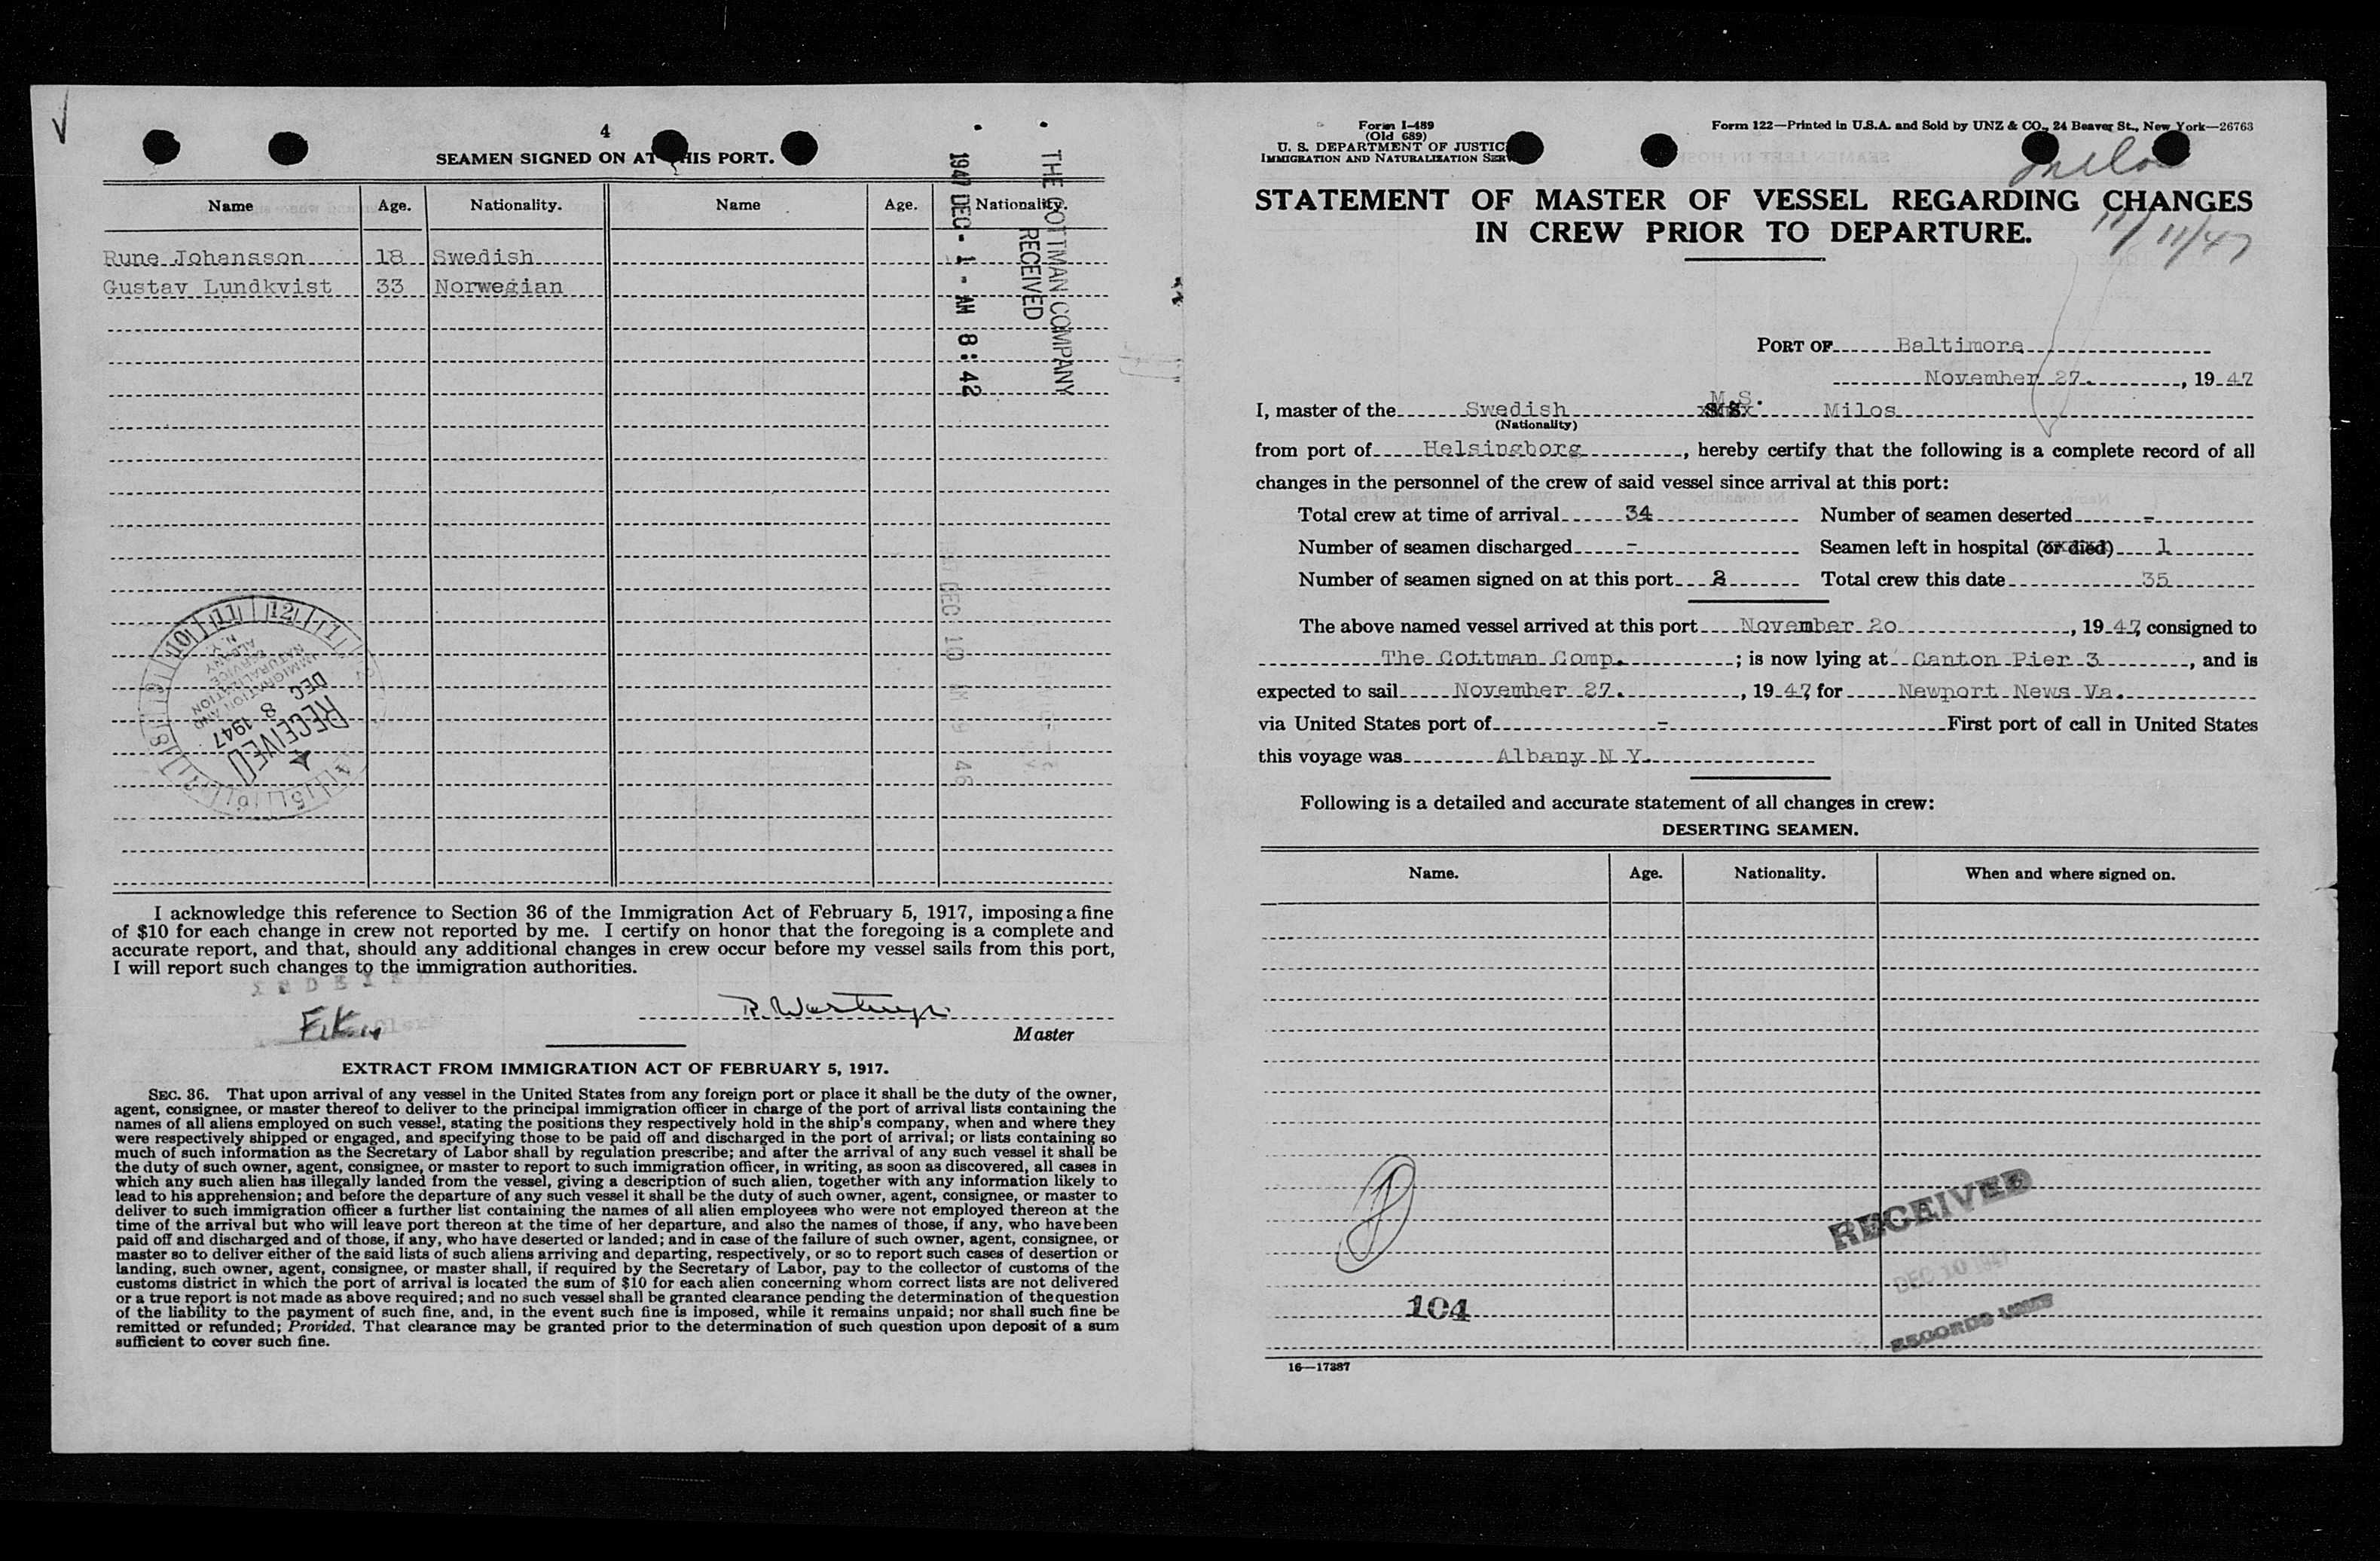 4
SEAMEN SIGNED ON AT THIS PORT.
Name Age. Nationality. Name Age. Nationality.
Rune Johansson 18 Swedish
Gustav Lundkvist 33 Norwegian
THE COTTMAN COMPANY
RECEIVED
1947 DEC - 1 - AM 8:42
DEC 10 AM 9 46
10 11 12 1
IMMIGRATION AND
NATURALIZATION
SERVICE
ALBANY
N. Y.
DEC 8 1947
RECEIVED
I acknowledge this reference to Section 36 of the Immigration Act of February 5, 1917, imposing a fine
of $10 for each change in crew not reported by me. I certify on honor that the foregoing is a complete and
accurate report, and that, should any additional changes in crew occur before my vessel sails from this port,
I will report such changes to the immigration authorities.
F.K.
Master
EXTRACT FROM IMMIGRATION ACT OF FEBRUARY 5, 1917.
SEC. 36. That upon arrival of any vessel in the United States from any foreign port or place it shall be the duty of the owner,
agent, consignee, or master thereof to deliver to the principal immigration officer in charge of the port of arrival lists containing the
names of all aliens employed on such vessel, stating the positions they respectively hold in the ship's company, when and where they
were respectively shipped or engaged, and specifying those to be paid off and discharged in the port of arrival; or lists containing so
much of such information as the Secretary of Labor shall by regulation prescribe; and after the arrival of any such vessel it shall be
the duty of such owner, agent, consignee, or master to report to such immigration officer, in writing, as soon as discovered, all cases in
which any such alien has illegally landed from the vessel, giving a description of such alien, together with any information likely to
lead to his apprehension; and before the departure of any such vessel it shall be the duty of such owner, agent, consignee, or master to
deliver to such immigration officer a further list containing the names of all alien employees who were not employed thereon at the
time of the arrival but who will leave port thereon at the time of her departure, and also the names of those, if any, who have been
paid off and discharged and of those, if any, who have deserted or landed; and in case of the failure of such owner, agent, consignee, or
master so to deliver either of the said lists of such aliens arriving and departing, respectively, or so to report such cases of desertion or
landing, such owner, agent, consignee, or master shall, if required by the Secretary of Labor, pay to the collector of customs of the
customs district in which the port of arrival is located the sum of $10 for each alien concerning whom correct lists are not delivered
or a true report is not made as above required; and no such vessel shall be granted clearance pending the determination of the question
of the liability to the payment of such fine, and, in the event such fine is imposed, while it remains unpaid; nor shall such fine be
remitted or refunded; Provided, That clearance may be granted prior to the determination of such question upon deposit of a sum
sufficient to cover such fine.
Form I-489
(Old 689)
U. S. DEPARTMENT OF JUSTIC
IMMIGRATION AND NATURALIZATION SER
Form 122—Printed in U.S.A. and Sold by UNZ & CO., 24 Beaver St., New York—26763
Milos
11/11/47
STATEMENT OF MASTER OF VESSEL REGARDING CHANGES
IN CREW PRIOR TO DEPARTURE.
PORT OF Baltimore
November 27. , 19 47
I, master of the Swedish M.S. Milos
(Nationality)
from port of Helsingborg , hereby certify that the following is a complete record of all
changes in the personnel of the crew of said vessel since arrival at this port:
Total crew at time of arrival 34 Number of seamen deserted -
Number of seamen discharged - Seamen left in hospital (or died) 1
Number of seamen signed on at this port 2 Total crew this date 35
The above named vessel arrived at this port November 20 , 19 47, consigned to
The Cottman Comp. ; is now lying at Canton Pier 3 , and is
expected to sail November 27. , 19 47, for Newport News Va.
via United States port of - First port of call in United States
this voyage was Albany N Y.
Following is a detailed and accurate statement of all changes in crew:
DESERTING SEAMEN.
Name. Age. Nationality. When and where signed on.
RECEIVED
DEC 10 1947
RECORDS
104
16—17387